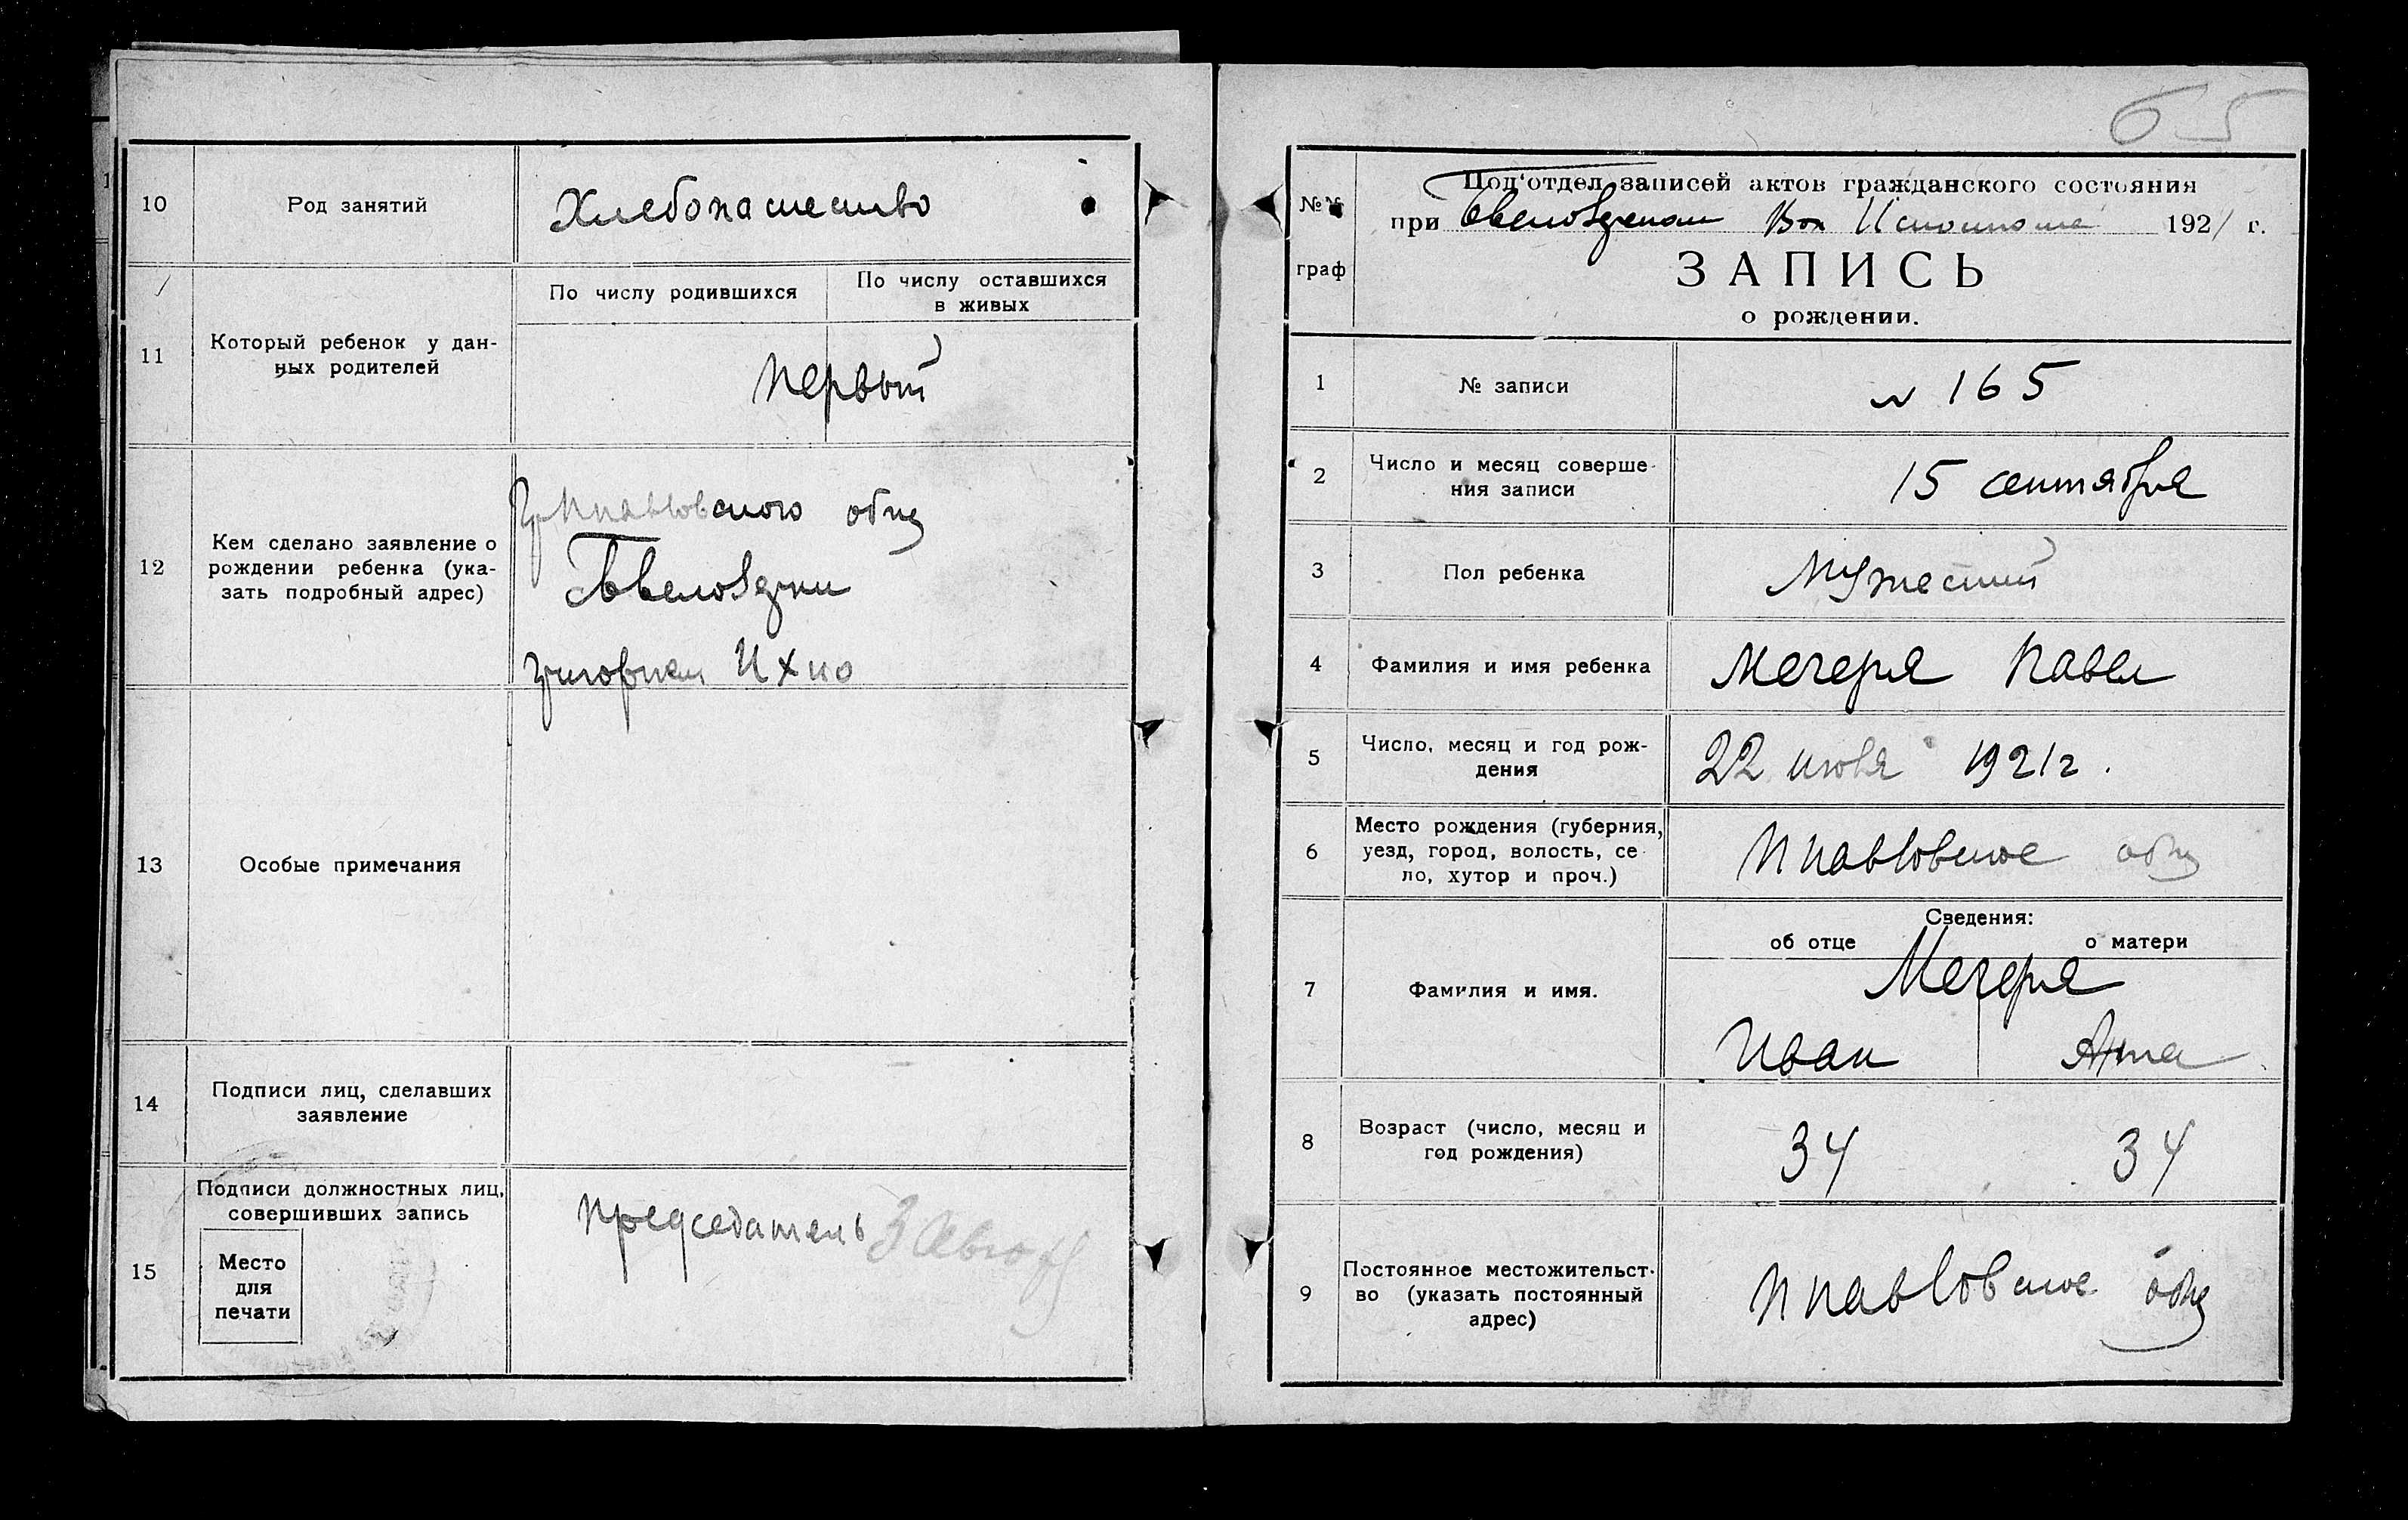 10
Род занятий
Хлебопашество
11
Который ребенок у дан-
ных родителей
По числу родившихся
По числу оставшихся
в живых
первый
12
Кем сделано заявление о
рождении ребенка (ука-
зать подробный адрес)
общ
13
Особые примечания
14
Подписи лиц, сделавших
заявление
15
Подписи должностных лиц,
совершивших запись
Место
для
печати
председатель
65
№№
граф
Под'отдел записей актов гражданского состояния
при Вол 1921 г.
ЗАПИСЬ
о рождении.
1
№ записи
№ 165
2
Число и месяц соверше-
ния записи
15 сентября
3
Пол ребенка
Мужеский
4
Фамилия и имя ребенка
Мечеря Павел
5
Число, месяц и год рож-
дения
22 1921 г.
6
Место рождения (губерния,
уезд, город, волость, се-
ло, хутор и проч.)
Ппавловское общ
7
Фамилия и имя.
Сведения:
об отце
о матери
Мечеря
Иван
Анна
8
Возраст (число, месяц и
год рождения)
34
34
9
Постоянное местожительст-
во (указать постоянный
адрес)
Ппавловское общ